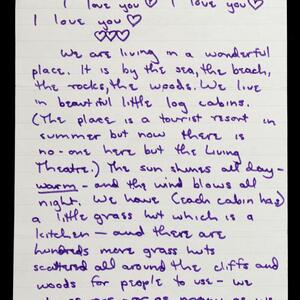 I love you♡ I love you♡
I love you♡
♡♡♡
We are living in a wonderful
place. It is by the sea, the beach,
the rocks, the woods. We live
in beautiful little log cabins.
(The place is a tourist resort in
summer but now there is
no-one here but the Living
Theatre.) The sun shines all day-
warm - and the wind blows all
night. We have (each cabin has)
a little grass hut which is a
kitchen - and there are
hundreds more grass huts
scattered all around the cliffs and
woods for people to use - we